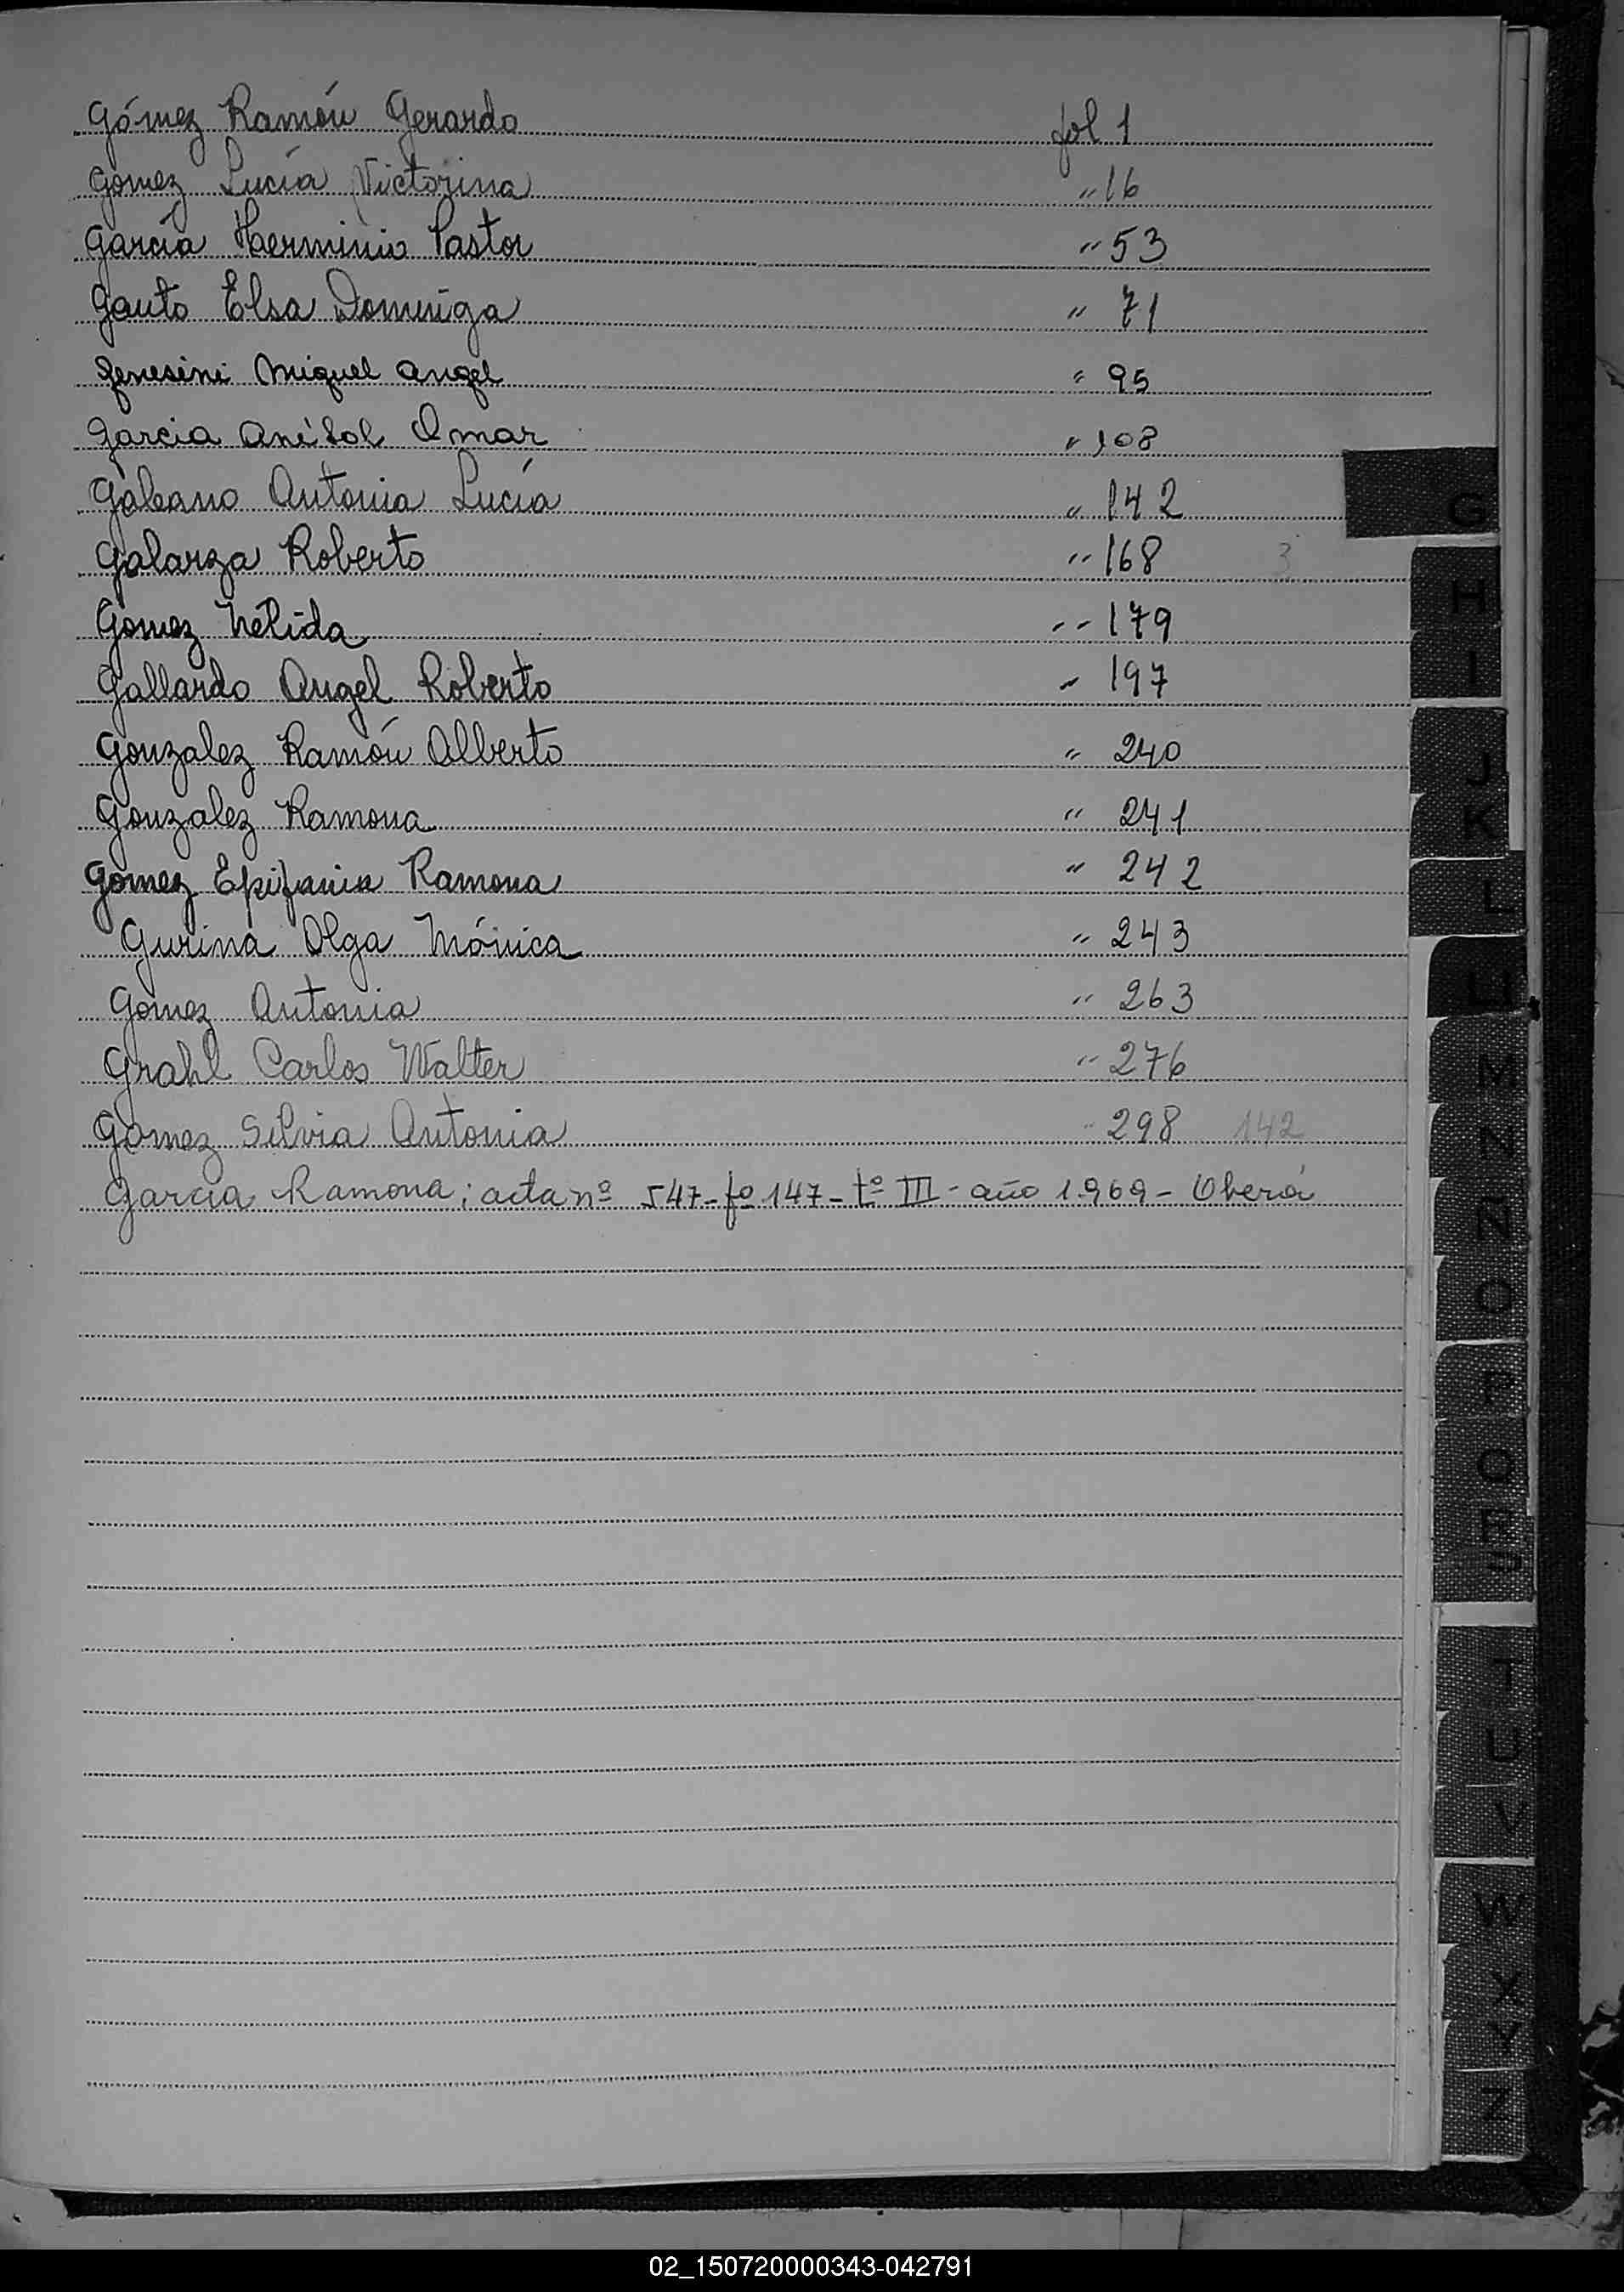 Gómez Ramón Gerardo fol 1
Gomez Lucía Victorina " 16
García Herminio Pastor " 53
Gauto Elsa Dominga " 71
Genesini Miguel Angel " 95
Garcia Omar " 108
Galeano Antonia Lucía " 142
Galarza Roberto " 168 3
Gomez Nélida " 179
Gallardo Angel Roberto " 197
Gonzalez Ramón Alberto " 240
Gonzalez Ramona " 241
Gomez Epifania Ramona " 242
Gurina Olga Mónica " 243
Gomez Antonia " 263
Grahl Carlos Walter " 276
Gomez Silvia Antonia " 298 142
Garcia Ramona; acta nº 547-fº 147-tº III- año 1.969- Oberá
G
H
I
J
K
L
LL
M
N
Ñ
O
P
Q
R
S
T
U
V
W
X
Y
Z
02_150720000343-042791